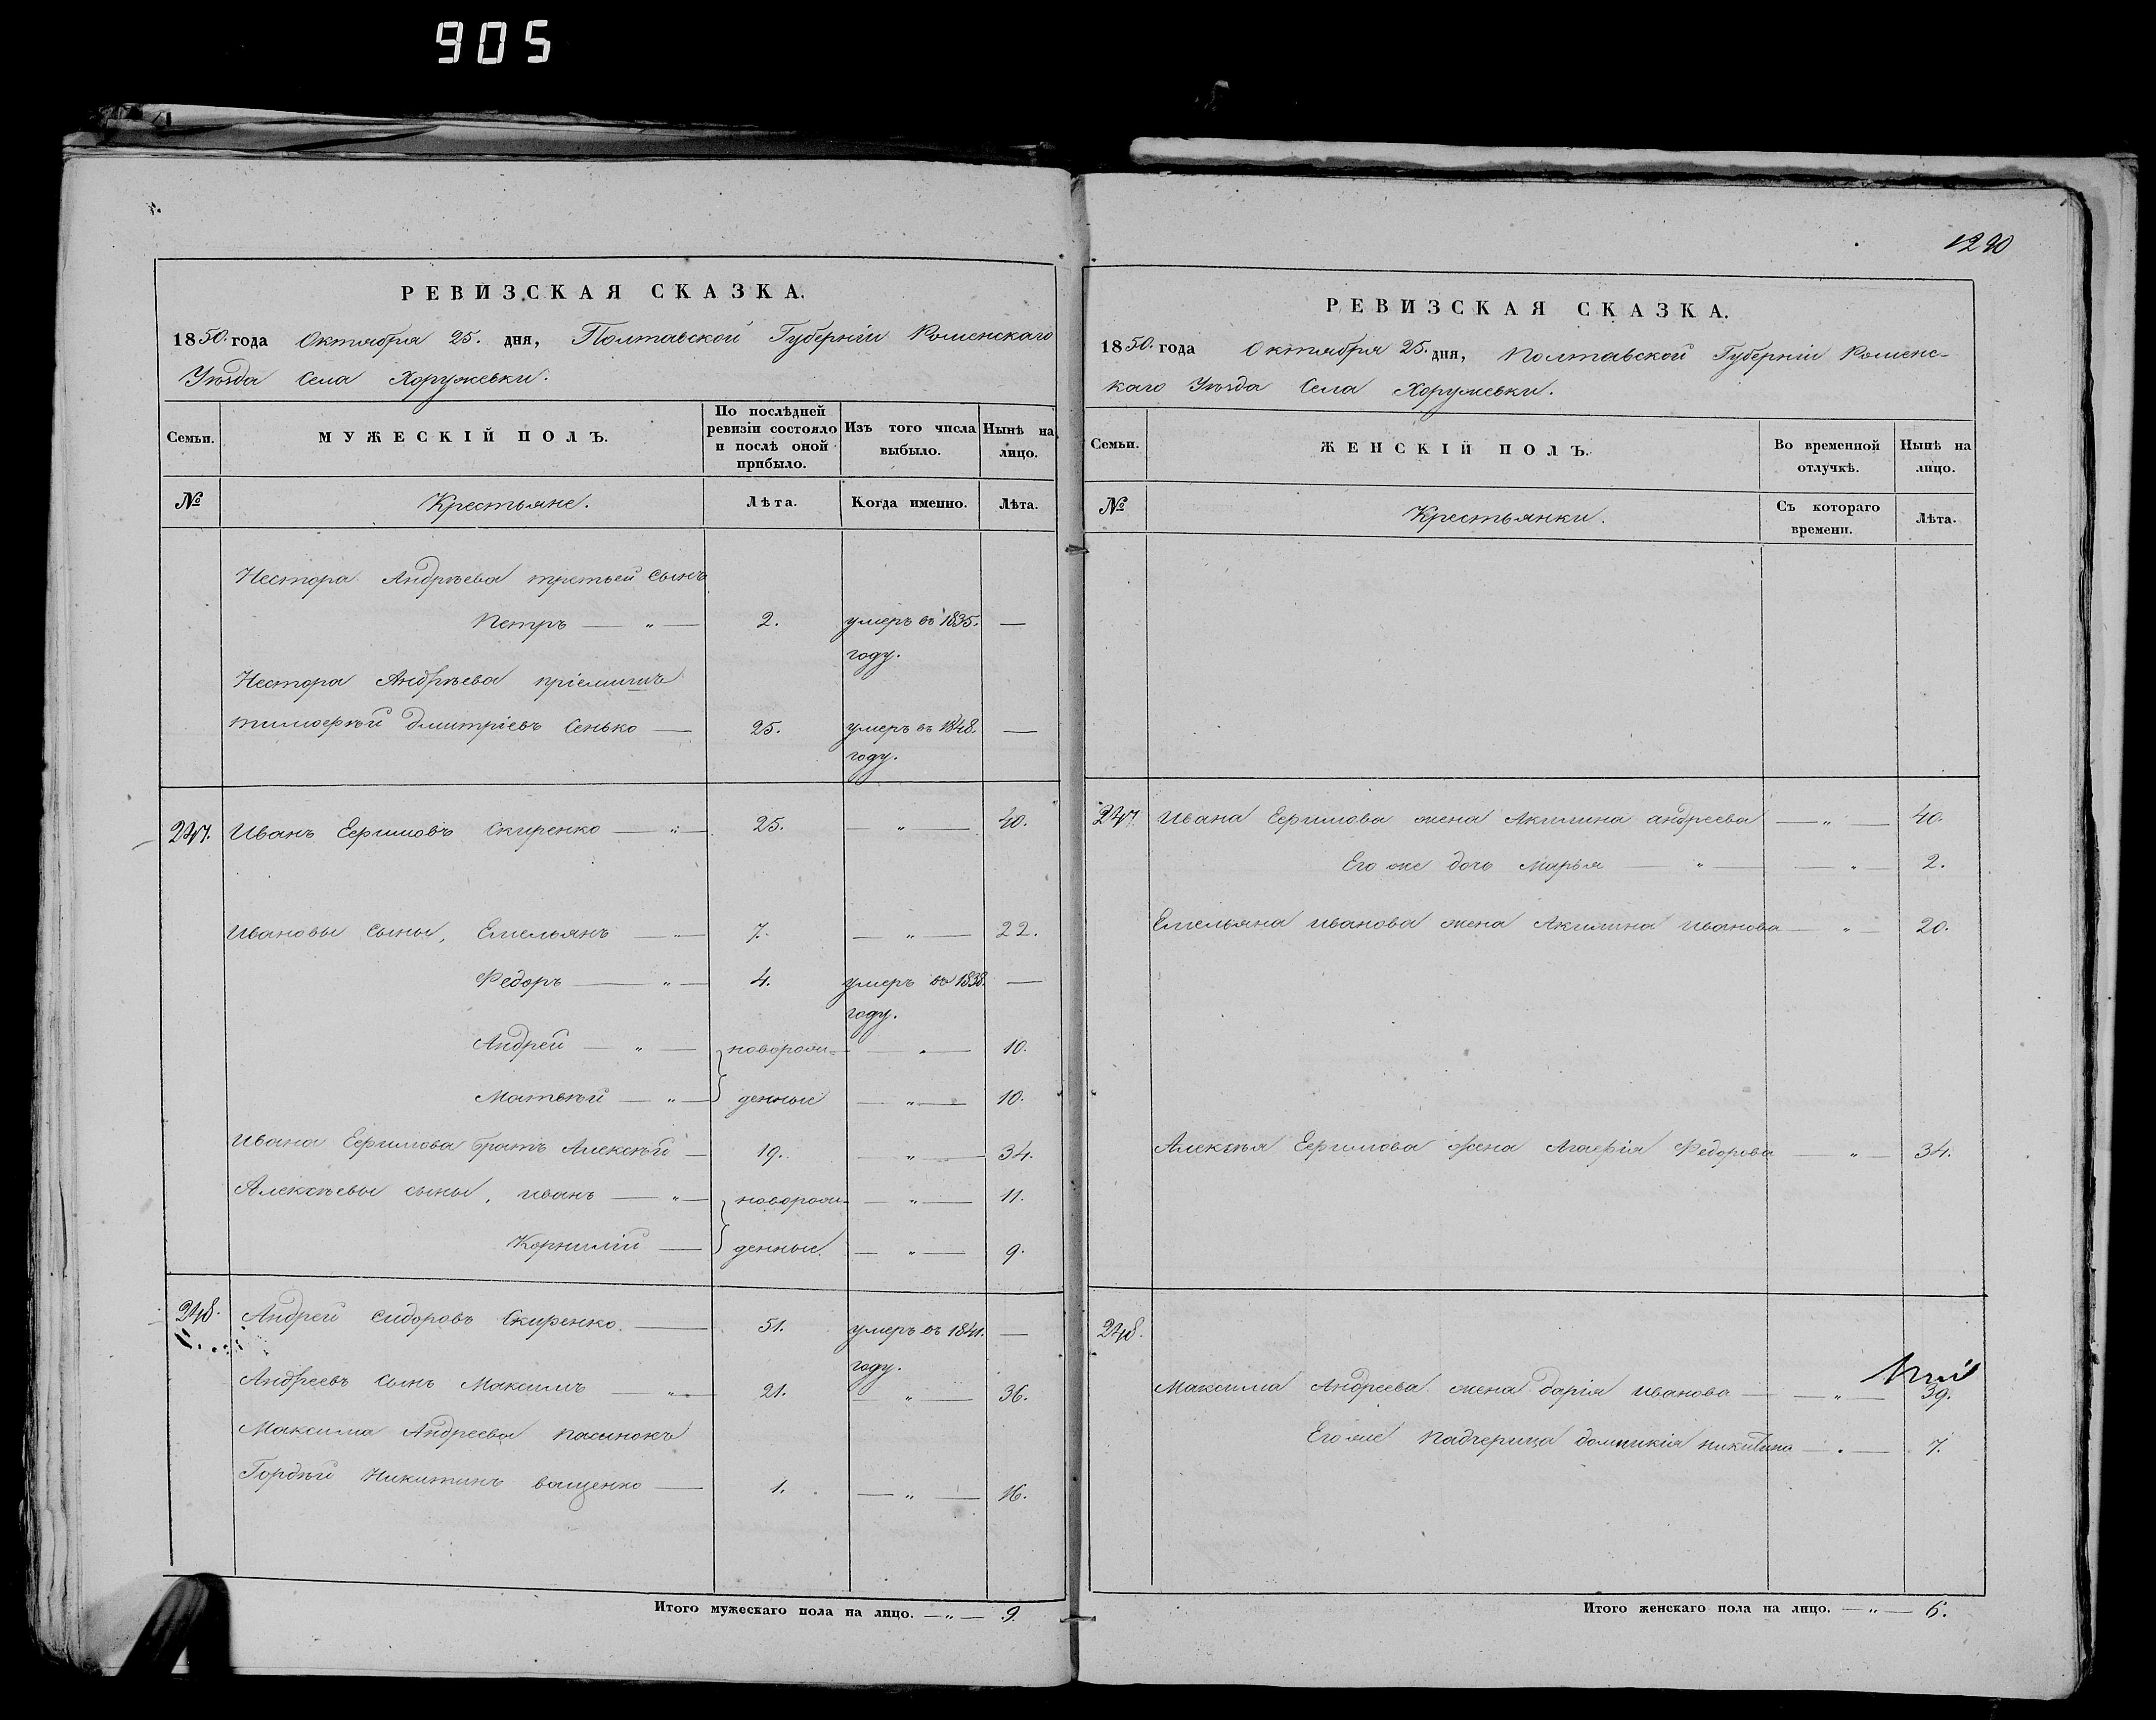 905
РЕВИЗСКАЯ СКАЗКА.
1850. года Октября 25. дня, Полтавской Губерніи Роменскаго
Уѣзда Села Хоружевки.
Семьи.
МУЖЕСКІЙ ПОЛЪ.
По послѣдней
ревизіи состояло
и послѣ оной
прибыло.
Изъ того числа
выбыло.
Нынѣ на
лицо.
№ Крестьяне. Лѣта. Когда именно. Лѣта.
Нестора Андрѣева третьей сынъ
Петръ — „ — 2. умеръ въ 1835. —
году.
Нестора Андрѣева пріемишъ
тимофѣй дмитріевъ Сенько — 25. умеръ въ 1848. —
году.
247. Иванъ Ефимовъ Скиренко — „ — 25. — „ — 40.
Ивановы сыны, Емельянъ — „ — 7. — „ — 22.
Федоръ — „ — 4. умеръ въ 1838. —
году.
Андрей — „ — новорож- — „ — 10.
Матвѣй — „ — денные — „ — 10.
Ивана Ефимова братъ Алексѣй — 19. — „ — 34.
Алексѣевы сыны, иванъ — „ — новорож- — „ — 11.
Корнилій — денные. — „ — 9.
248. Андрей Сидоровъ Скиренко. — 51. умеръ въ 1841. —
году.
Андреевъ сынъ Максимъ — „ — 21. — „ — 36.
Максима Андреева пасынокъ
Гордѣй Никитинъ ващенко — 1. — „ — 16.
Итого мужескаго пола на лицо. — „ — 9.
1290
РЕВИЗСКАЯ СКАЗКА.
1850. года Октября 25. дня, Полтавской Губерніи Роменс-
каго Уѣзда Села Хоружевки.
Семьи.
ЖЕНСКІЙ ПОЛЪ.
Во временной
отлучкѣ.
Нынѣ на
лицо.
№ Крестьянки. Съ котораго
времени. Лѣта.
247. Ивана Ефимова жена Акилина андреева — „ — 40.
Его же дочь Марья — „ — — „ — 2.
Емельяна иванова жена Акилина иванова — „ — 20.
Алексѣя Ефимова жена Агафія Федорова — „ — 34.
248.
Максима Андреева жена дарія иванова — — „ — 39.
Его же падчерица домникія никитина — „ — 7.
Итого женскаго пола на лицо. — „ — 6.